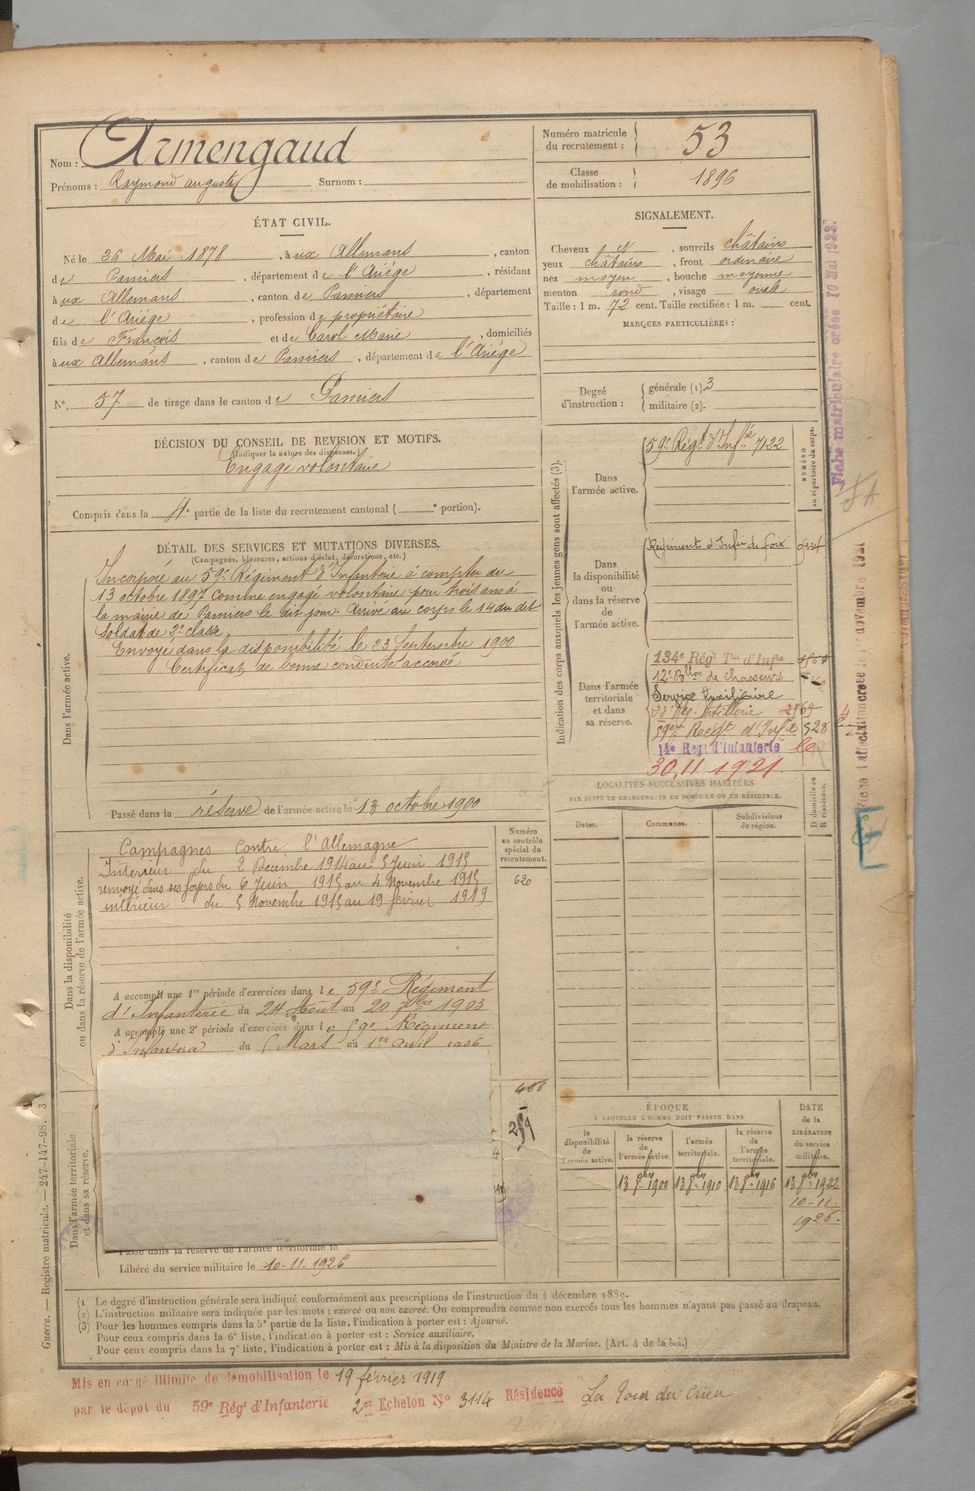 Nom : Armengaud
Prénoms : Raymond Auguste Surnom :
Numéro matricule du recrutement : 53
Classe de mobilisation : 1896
ÉTAT CIVIL.
Né le 26 Mai 1878, à ux Allemans, canton
de Pamiers, département de l'Ariége, résidant
à ux Allemans, canton de Pamiers, département
de l'Ariége, profession de propriétaire
fils de François et de Carol Marie, domiciliés
à ux Allemans, canton de Pamiers, département de l'Ariége
N° 57 de tirage dans le canton de Pamiers
SIGNALEMENT.
Cheveux et, sourcils châtains
yeux châtains, front ordinaire
nez moyen, bouche moyenne
menton rond, visage ovale
Taille : 1 m. 72 cent. Taille rectifiée : 1 m. cent.
MARQUES PARTICULIÈRES :
Degré d'instruction : générale (1) 3
militaire (2).
DÉCISION DU CONSEIL DE REVISION ET MOTIFS.
(Indiquer la nature des dispenses.)
Engagé volontaire
Compris dans la 4e partie de la liste du recrutement cantonal ( e portion).
DÉTAIL DES SERVICES ET MUTATIONS DIVERSES.
(Campagnes, blessures, actions d'éclat, décorations, etc.)
Dans l'armée active.
Incorporé au 59e Régiment d'Infanterie à compter du
13 octobre 1897 comme engagé volontaire pour trois ans à
la mairie de Pamiers le dit jour. Arrivé au corps le 14 du dit
Soldat de 2e classe
Envoyé dans la disponibilité le 23 Septembre 1900
Certificat de bonne conduite accordé
Passé dans la réserve de l'armée active le 13 octobre 1900
Indication des corps auxquels les jeunes gens sont affectés (3).
NUMÉRO au répertoire du corps.
Dans l'armée active.
59e Régt d'Infie 7122
Dans la disponibilité ou dans la réserve de l'armée active.
Régiment d'Infie de foix
Dans l'armée territoriale et dans sa réserve.
134e Régt Tal d'Infie
12e Bllon de chasseurs
Service Auxiliaire
Artillerie
Régt d'Infie 528
14e Régt d'Infanterie
30.11 1921
Fiche matriculaire créée 10 Mai 1922.
LOCALITÉS SUCCESSIVES HABITÉES
PAR SUITE DE CHANGEMENTS DE DOMICILE OU DE RÉSIDENCE.
Dates.
Communes.
Subdivisions de région.
D domicile ou R résidence.
Dans la disponibilité ou dans la réserve de l'armée active.
Numéro au contrôle spécial du recrutement.
620
Campagnes Contre l'Allemagne
Intérieur du 2 Decembre 1914 au 5 Juin 1915
renvoyé dans ses foyers du 6 Juin 1915 au 4 Novembre 1915
intérieur du 5 Novembre 1915 au 19 février 1919
A accompli une 1re période d'exercices dans le 59e Régiment
d'Infanterie du 24 Août au 20 7bre 1903
A accompli une 2e période d'exercices dans le 59e Régiment
d'Infanterie du 5 Mars au 1er avril 1906
Dans l'armée territoriale et dans sa réserve.
Passé dans la réserve de l'armée territoriale le
Libéré du service militaire le 10-11-1926
ÉPOQUE
À LAQUELLE L'HOMME DOIT PASSER DANS
la disponibilité de l'armée active.
la réserve de l'armée active.
l'armée territoriale.
la réserve de l'armée territoriale.
DATE de la LIBÉRATION du service militaire.
13 8bre 1900
13 8bre 1910
13 8bre 1916
13 8bre 1922
10-11-
1926.
(1 Le degré d'instruction générale sera indiqué conformément aux prescriptions de l'instruction du 4 décembre 1889.
(2) L'instruction militaire sera indiquée par les mots : exercé ou non exercé. On comprendra comme non exercés tous les hommes n'ayant pas passé au drapeau.
(3) Pour les hommes compris dans la 5e partie de la liste, l'indication à porter est : Ajourné.
Pour ceux compris dans la 6e liste, l'indication à porter est : Service auxiliaire.
Pour ceux compris dans la 7e liste, l'indication à porter est : Mis à la disposition du Ministre de la Marine. (Art. 4 de la loi.)
Guerre. — Registre matricule. — 247-147-98. 3
Mis en congé illimité de démobilisation le 19 février 1919
par le dépôt du 59e Régt d'Infanterie 2er Echelon N° 3114 Résidence La Tour du Crieu